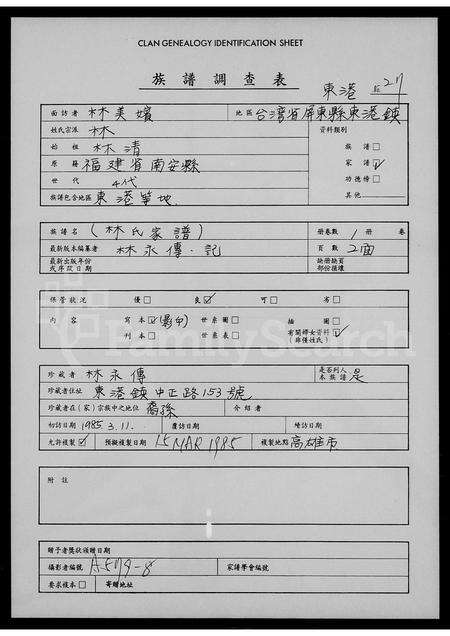 CLAN GENEALOGY IDENTIFICATION SHEET
族譜調查表
東港 E27
面訪者 林美嬪 地區 台湾省屏東縣東港鎮
姓氏宗派 林 資料類別
始祖 林清 族譜□
原籍 福建省南安縣 家譜☑
世代 4代 功德榜□
族譜包含地區 東港等地 其他
族譜名 (林氏家譜) 册卷數 1 册 卷
最新版本編纂者 林永傳.記 頁數 2面
最新出版年份或序跋日期 缺册缺頁部份損壞
保管狀況 優□ 良☑ 可□ 劣□
內容 寫本☑(影印) 世系圖□ 插圖□
刊本□ 世系表□ 有關婦女資料(非僅姓氏)☑
FamilySearch
珍藏者 林永傳 是否列入本族譜 是
珍藏者住址 東港鎮中正路153號
珍藏者在(家)宗族中之地位 裔孫 介紹者
初訪日期 1985.3.11. 覆訪日期 補訪日期
允許複製☑ 預擬複製日期 15 MAR 1985 複製地點 高雄市
附註
贈予者獎狀頒贈日期
攝影者編號 A-579-8 家譜學會編號
要求複本□ 寄贈地址